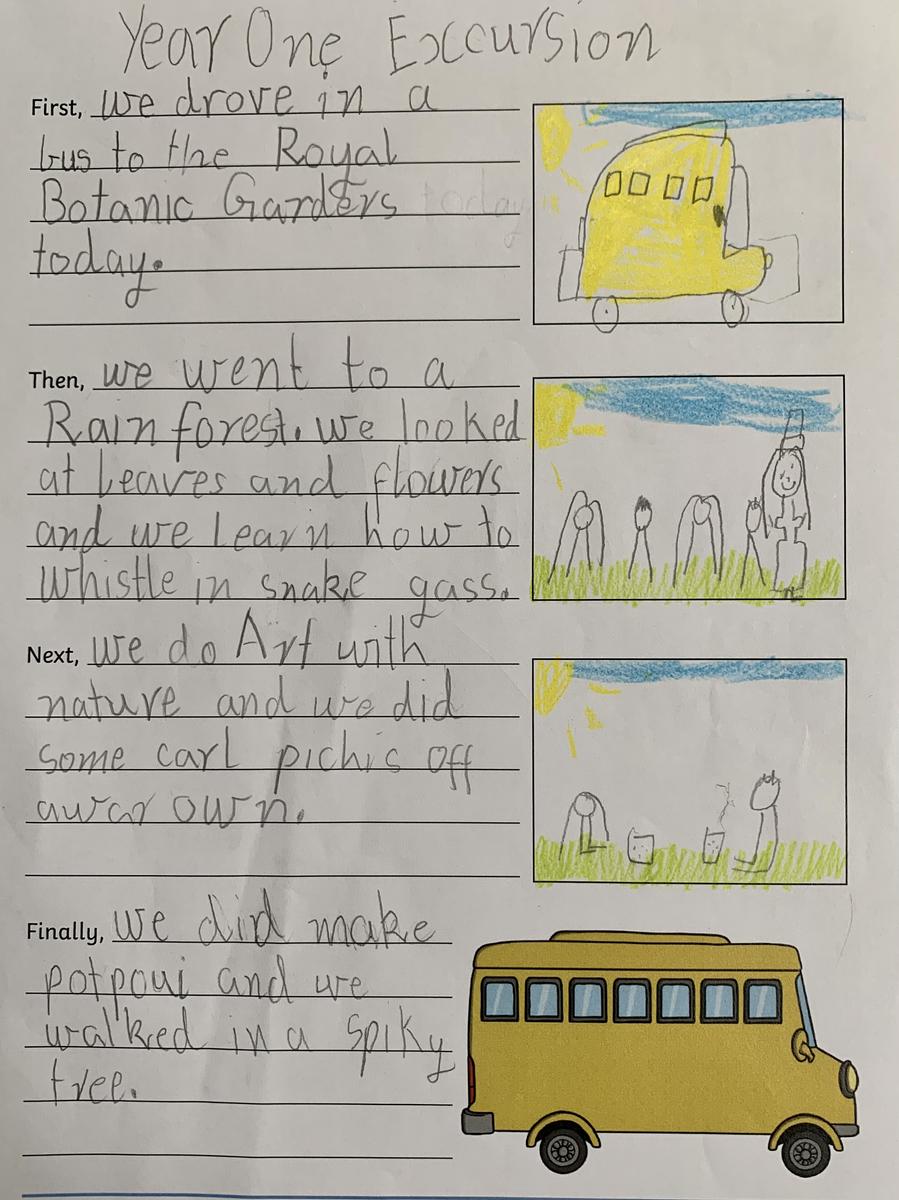 Year One Excursion
First, we drove in a
bus to the Royal
Botanic Gardens
today.
Then, we went to a
Rain forest. we looked
at Leaves and flowers
and we learn how to
whistle in snake gass.
Next, we do Art with
nature and we did
some carl pichis off
awar own.
Finally, we did make
potpoui and we
walked in a spiky
tree.